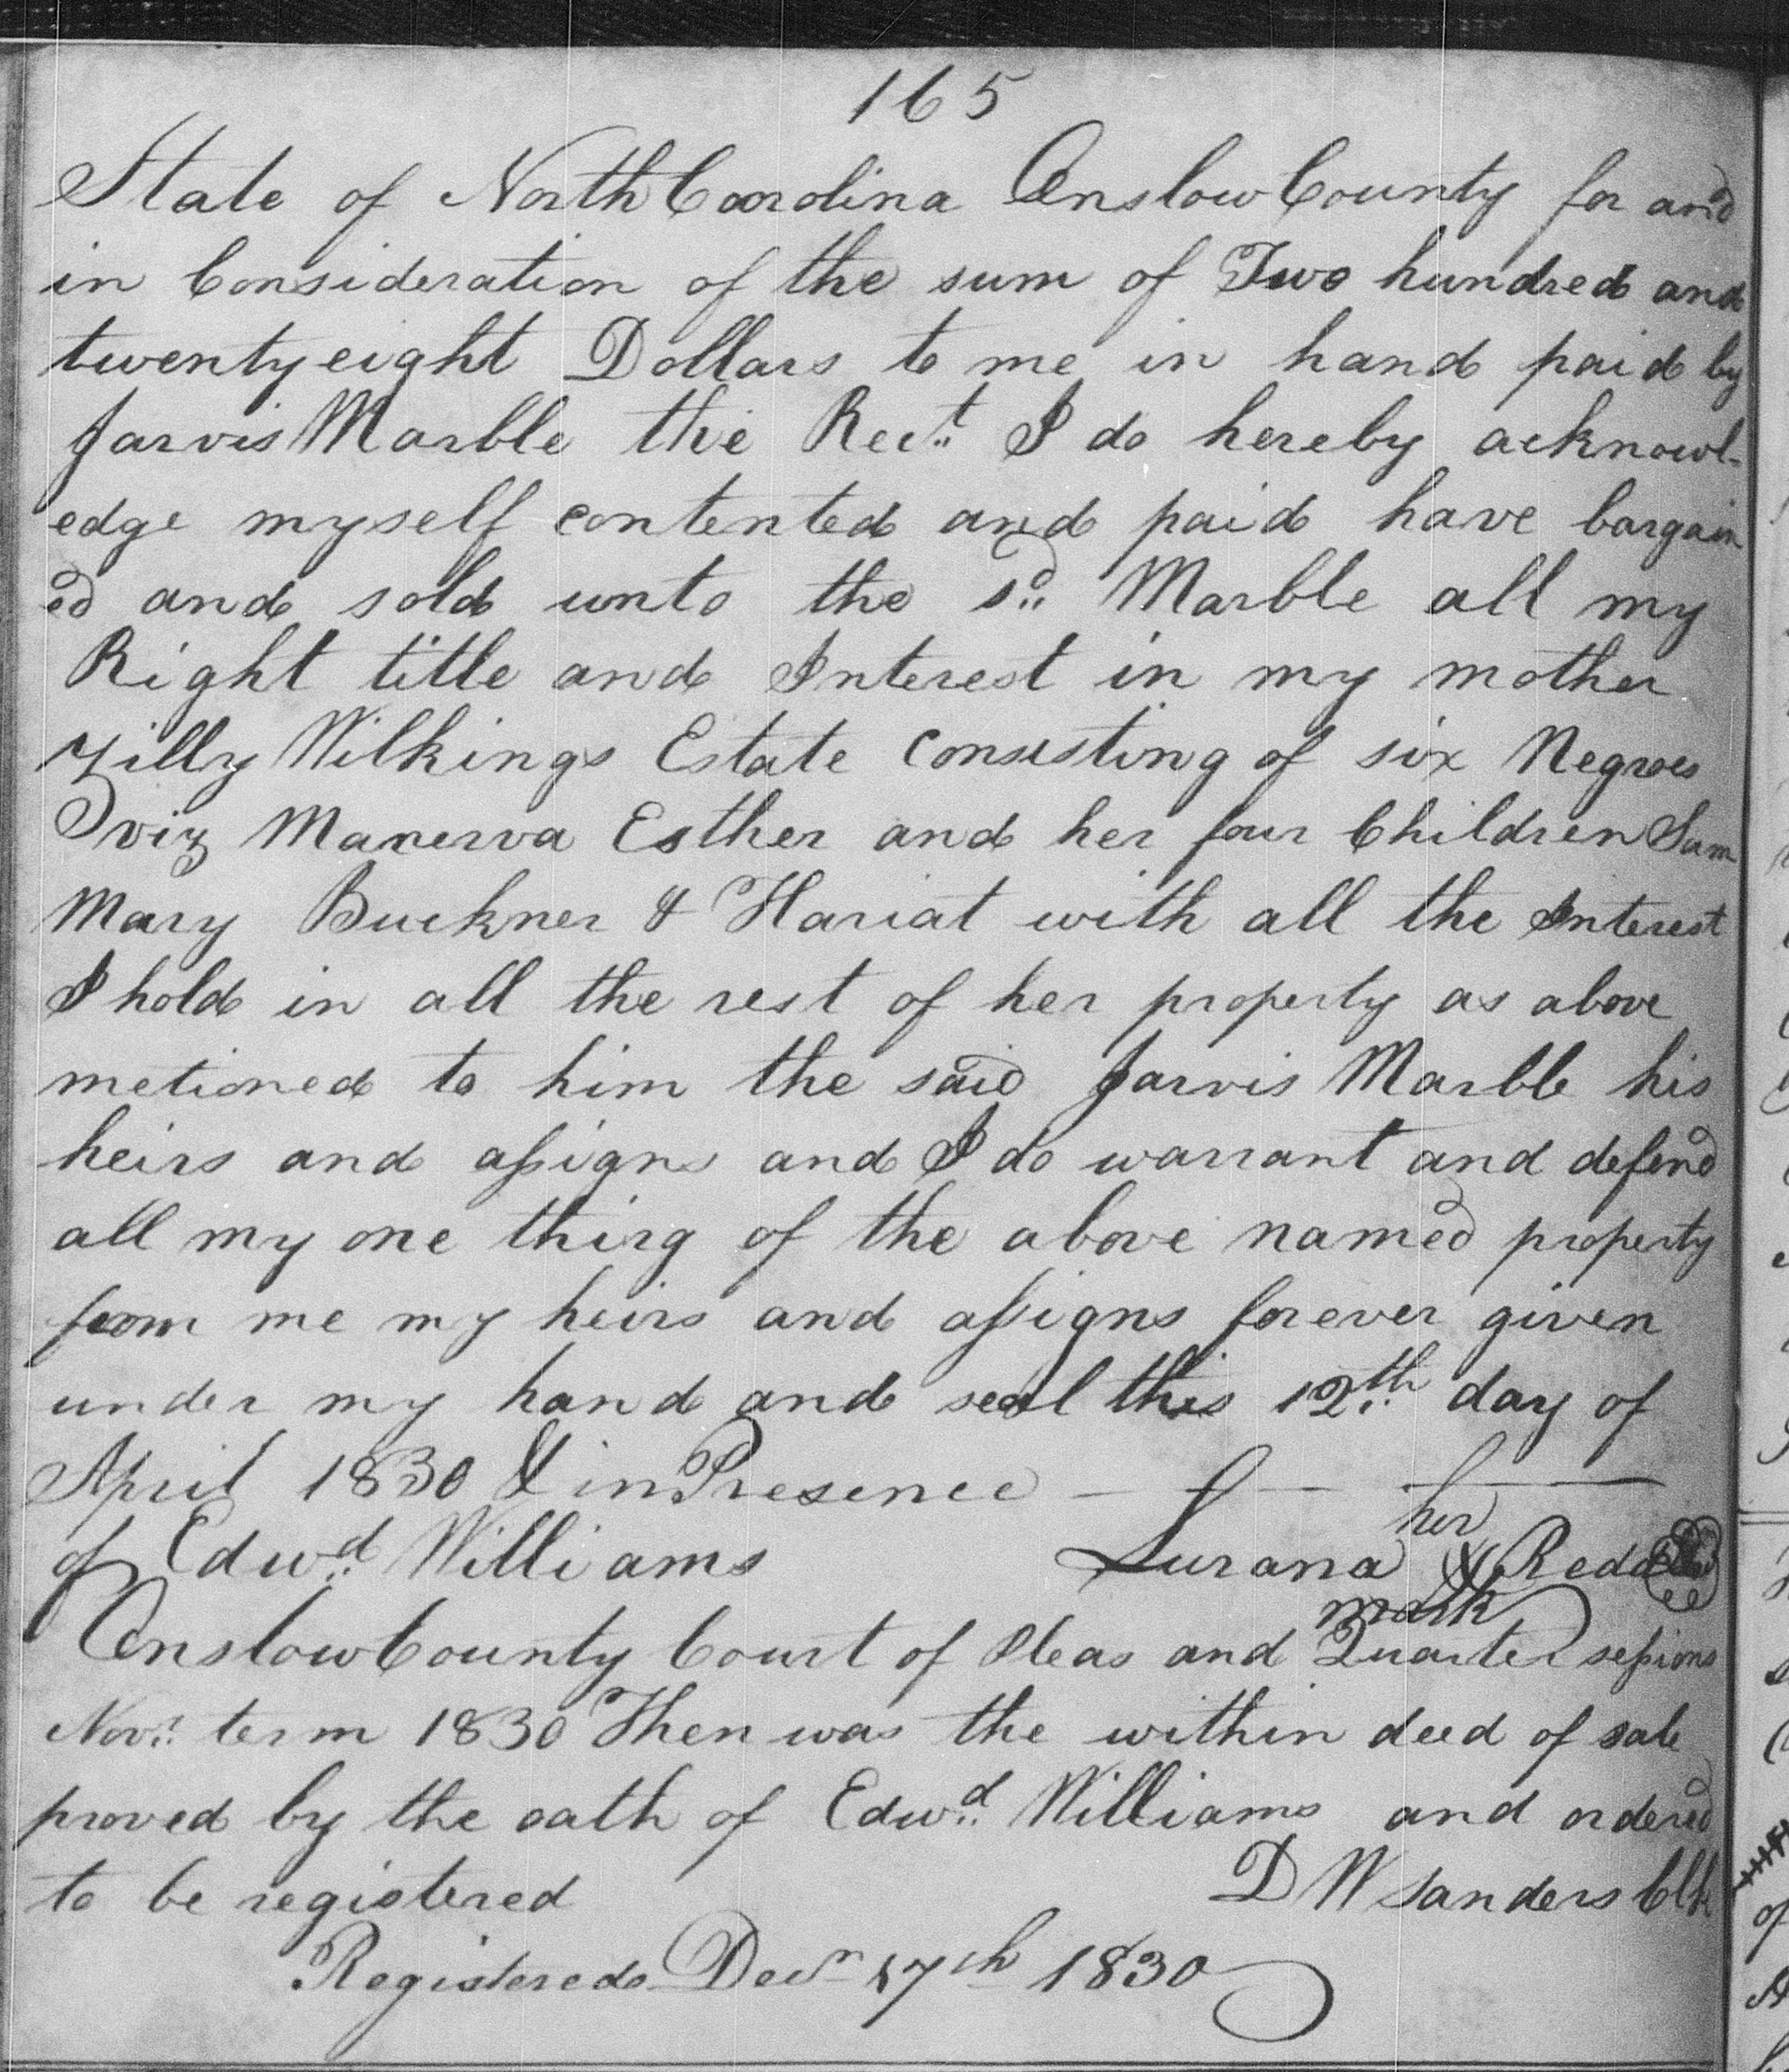 165
State of North Carolina Onslow County for and
in Consideration of the sum of Two hundred and
twenty eight Dollars to me in hand paid by
Jarvis Marble the Rect. I do hereby acknowl-
edge myself contented and paid have bargain
ed and sold unto the sd. Marble all my
Right title and Interest in my mother
Zilly Wilkings Estate Consisting of six Negroes
viz Manerva Esther and her four Children Sam
Mary Buckner & Hariat with all the Interest
I hold in all the rest of her property as above
metioned to him the said Jarvis Marble his
heirs and assigns and I do warrant and defend
all my one thirg of the above named property
from me my heirs and assigns forever given
under my hand and seal this 12th. day of
April 1830 & in Presence
of Edwd. Williams Surana her X mark Redd
Onslow County Court of Pleas and Quarter sessions
Novr. term 1830 Then was the within deed of sale
proved by the oath of Edwd. Williams and ordered
to be registered D W Sanders Clk
Registered Decr 17th 1830